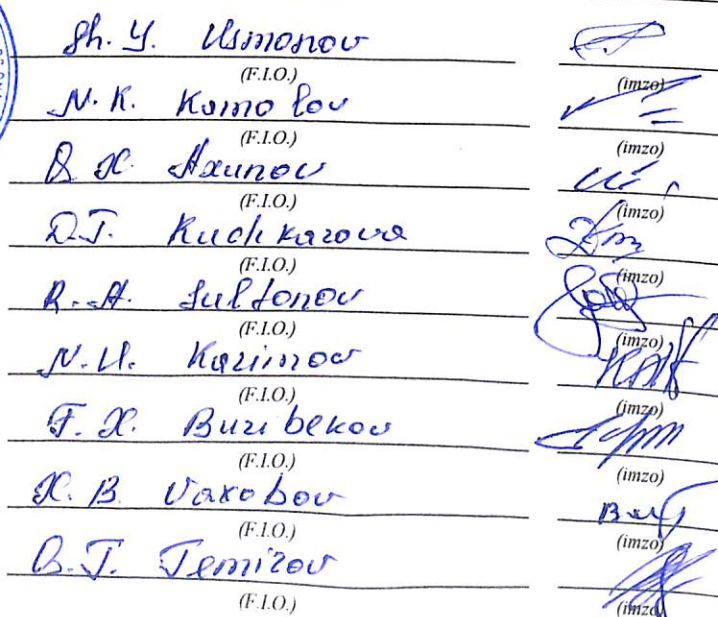 Sh. Y. Usmonov
(F.I.O.) (imzo)
N. K. Komolov
(F.I.O.) (imzo)
B. X. Axunov
(F.I.O.) (imzo)
D.T. Kuchkarova
(F.I.O.) (imzo)
R. A. Sultonov
(F.I.O.) (imzo)
N. U. Karimov
(F.I.O.) (imzo)
F. X. Buribekov
(F.I.O.) (imzo)
X. B. Vaxobov
(F.I.O.) (imzo)
B. T. Temirov
(F.I.O.) (imzo)